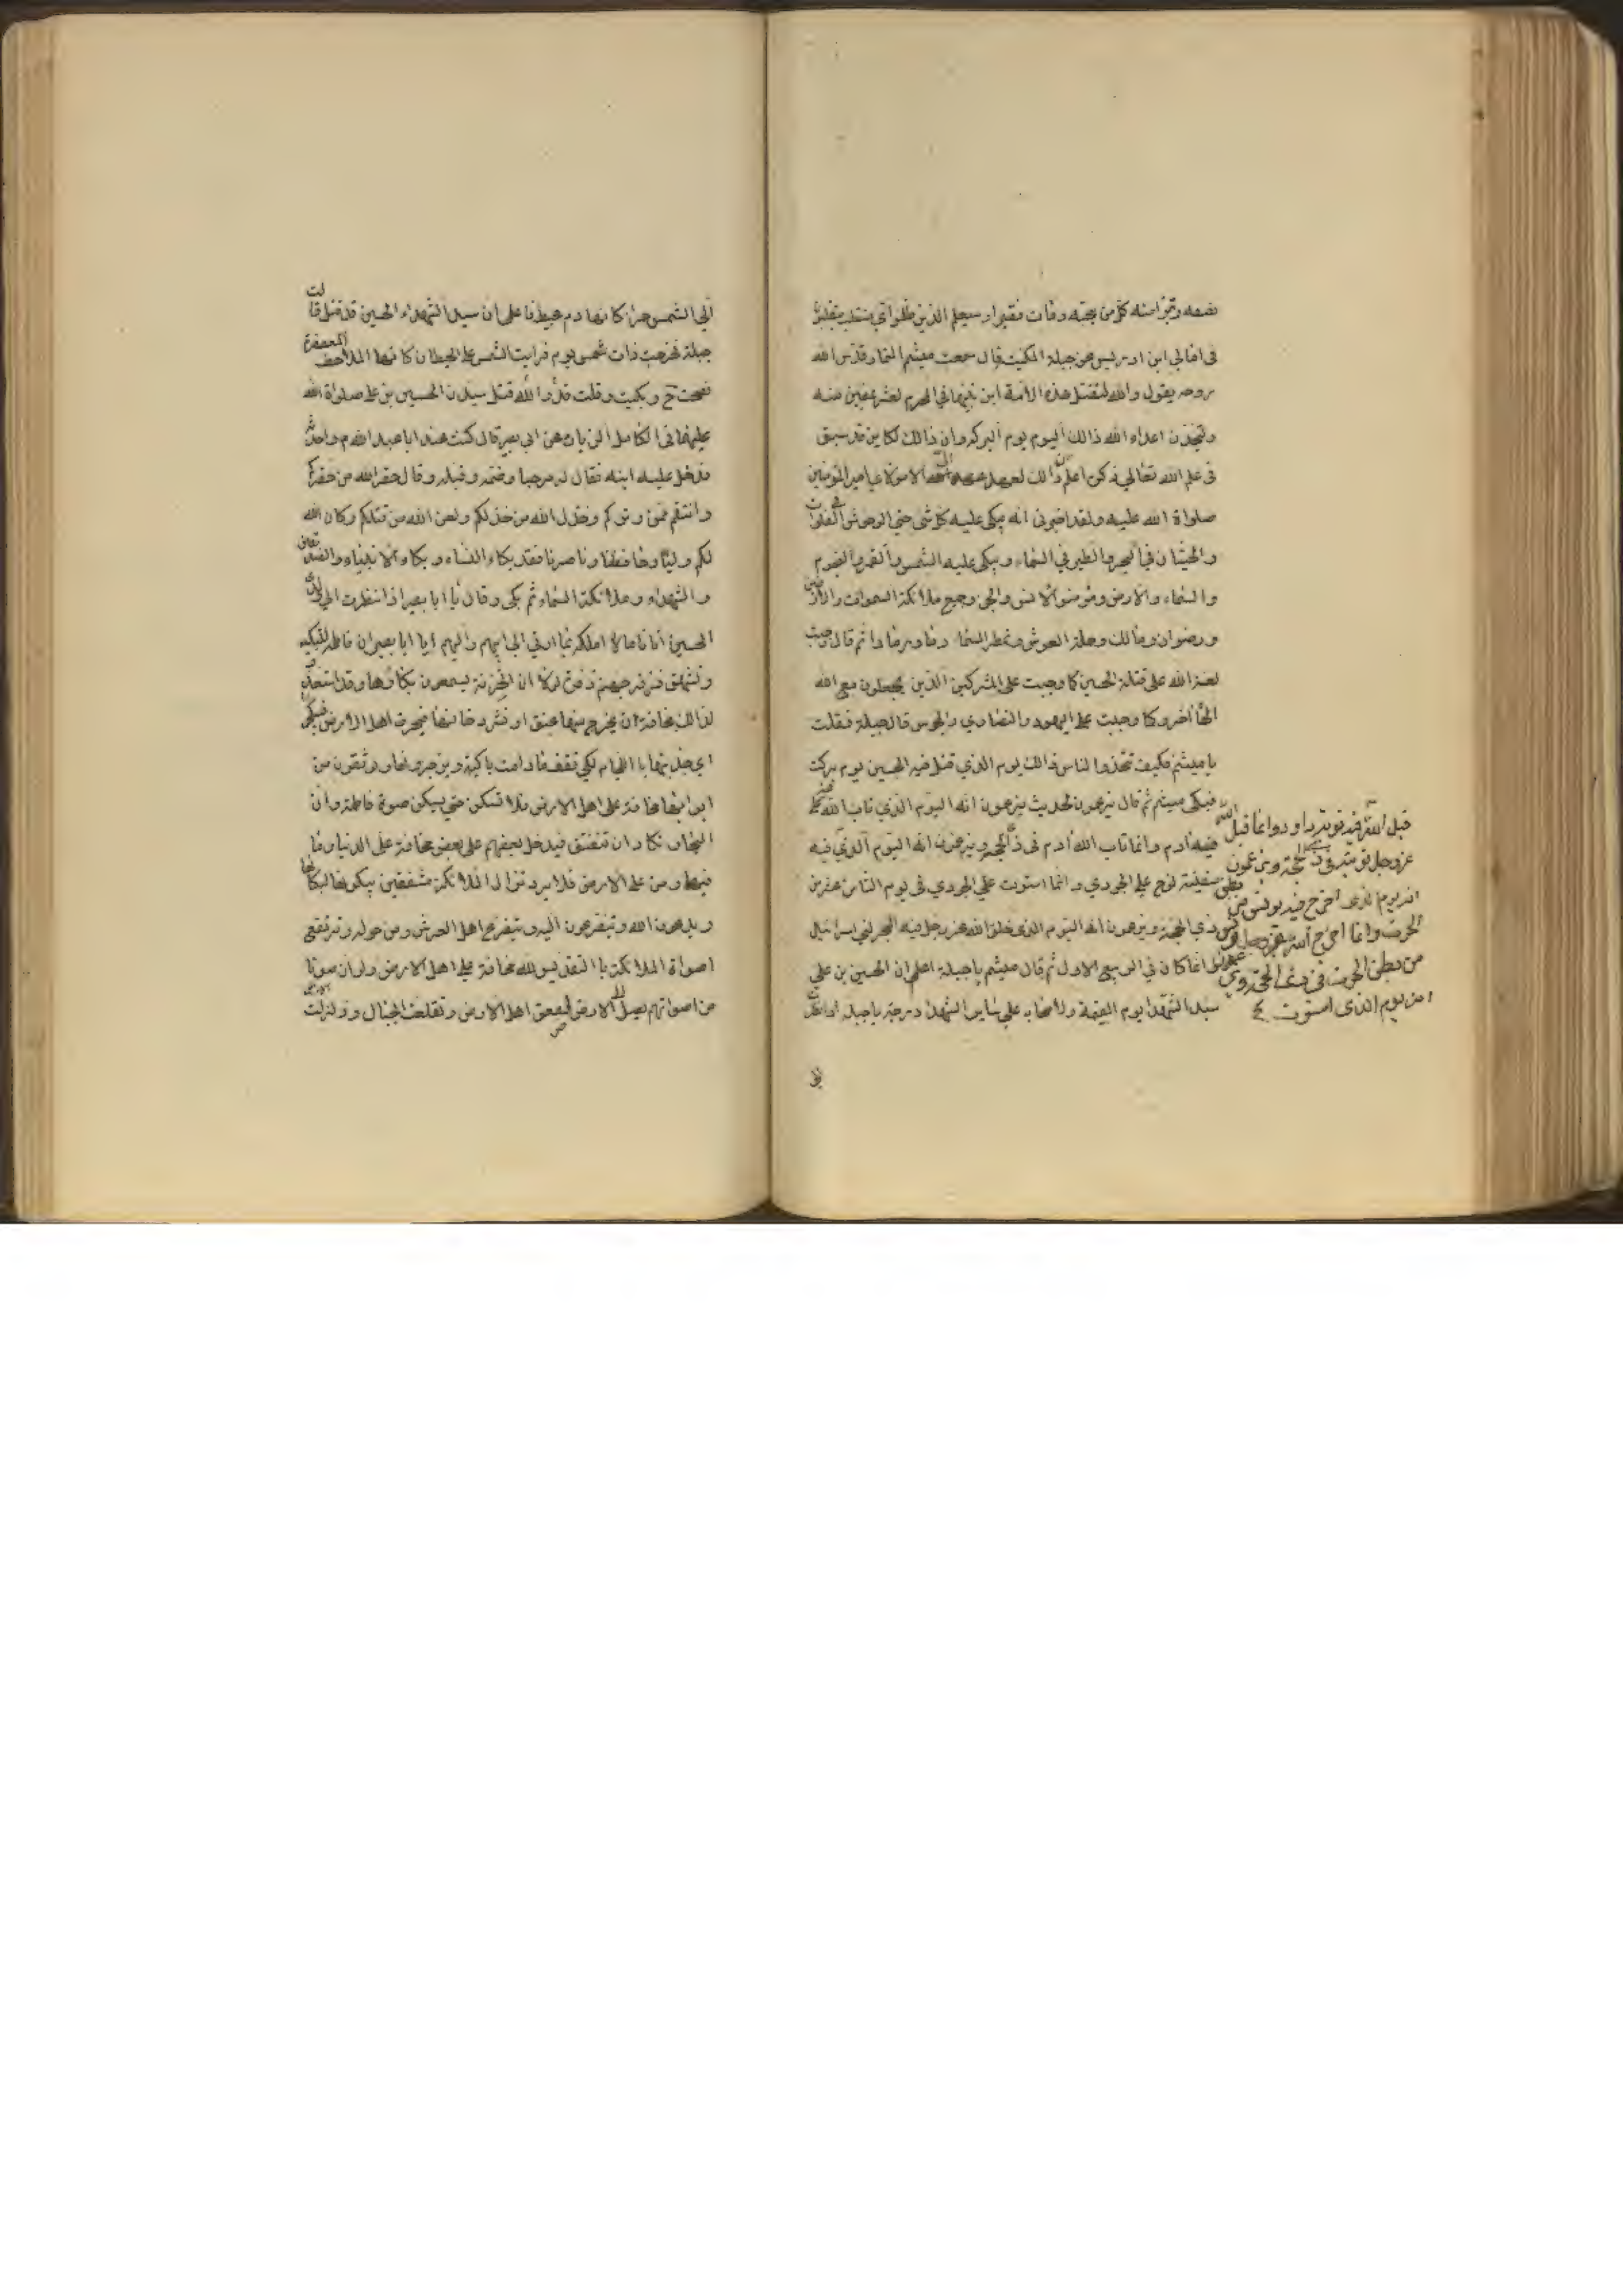 نفسه وتبرا منه كل من يحبه ومات فقيرا وسيعلم الذين ظلموا أي منقلب ينقلبون
في امالي ابن ادريس عن جبلة المكية قال سمعت ميثم التمار قدس الله
روحه يقول والله لتقتل هذه الامة ابن نبيها في المحرم لعشر يمضين منه
وليتخذن اعداء الله ذالك اليوم يوم البركة وان ذالك لكاين قد سبق
في علم الله تعالى ذكره اعلم ذالك لعهد عهده الي مولاي امير المؤمنين
صلواة الله عليه ولقد اخبرني انه يبكي عليه كل شئ حتى الوحوش في الفلوات
والحيتان في البحر والطير في السماء ويبكي عليه الشمس والقمر والنجوم
والسماء والارض ومؤمنوا الانس والجن وجميع ملائكة السموات والارضين
ورضوان ومالك وحملة العرش وتمطر السماء دما ورمادا ثم قال وجبت
لعنة الله على قتلة الحسين كما وجبت على المشركين الذين يجعلون مع الله
الها آخر وكما وجبت على اليهود والنصارى والمجوس قال جبلة فقلت
يا ميثم فكيف تتخذوا لناس ذالك يوم الذي قتل فيه الحسين يوم بركت
فبكى ميثم ثم قال يزعمون لحديث يزعمون انه اليوم الذي تاب الله
فيه آدم وانما تاب الله آدم في ذي الحجة ويزعمون انه اليوم الذي فيه
قبل الله فيه توبة داود وانما قبل الله
عز وجل توبته في ذي الحجة ويزعمون
انه يوم الذي اخرج فيه يونس من بطن
الحوت وانما اخرج الله عز وجل يونس
من بطن الحوت في ذي الحجة ويزعمون
انه يوم الذي استوت
سفينة نوح على الجودي وانما استوت على الجودي في يوم الثامن عشر من
ذي الحجة ويزعمون انه اليوم الذي فلق الله عز وجل فيه البحر لبني اسرائيل
وانما كان في الربيع الاول ثم قال ميثم يا جبلة اعلم ان الحسين بن علي
سيد الشهدا يوم القيمة ولاصحابه على ساير الشهدا درجة يا جبلة اذا نظرت
الى
الى الشمس حمراء كانها دم عبيط فاعلمي ان سيد الشهداء الحسين قد قتل قالت
جبلة فخرجت ذات يوم فرايت الشمس على الحيطان كانها الملاحف المعصفرة
فصحت ح وبكيت وقلت قد والله قتل سيدنا الحسين بن علي صلواة الله
عليهما في الكامل الزيارة عن ابي بصير قال كنت عند ابا عبد الله م واحدثه
فدخل عليه ابنه فقال له مرحبا وضمه وقبله وقال حقر الله من حقركم
وانتقم ممن وتركم وخذل الله من خذلكم ولعن الله من قتلكم وكان الله
لكم وليا وحافظا وناصرا فقد بكاء النساء وبكاء الانبياء والصديقين
والشهداء وملائكة السماء ثم بكى وقال يا ابا بصير اذا نظرت الى ولد
الحسين اتاني ما لا املكه بما اوتي الى ابيهم واليهم يا ابا بصير ان فاطمة لتبكيه
وتشهق فتزفر جهنم زفرة لولا ان الخزنة يسمعون بكاؤها وقد استعدوا
لذالك مخافة ان يخرج منها عنق او تشرد دخانها فيحرق اهل الارض فيبكي
ابوابها مخافة على اهل الارض فلا تسكن حتى يسكن صوة فاطمة وان
البحار تكاد ان تنفتق فيدخل بعضهم على بعض مخافة على الدنيا وما
فيها ومن على الارض فلا يزال الملائكة مشفقين يبكون لبكائها
ويدعون الله ويتضرعون اليه ويتضرع اهل العرش ومن حوله وترتفع
اصواة الملائكة بالتقديس لله مخافة على اهل الارض ولو ان صوتا
من اصواتهم يصل الى الارض لصعق اهل الارض وتقلعت الجبال وزلزلت